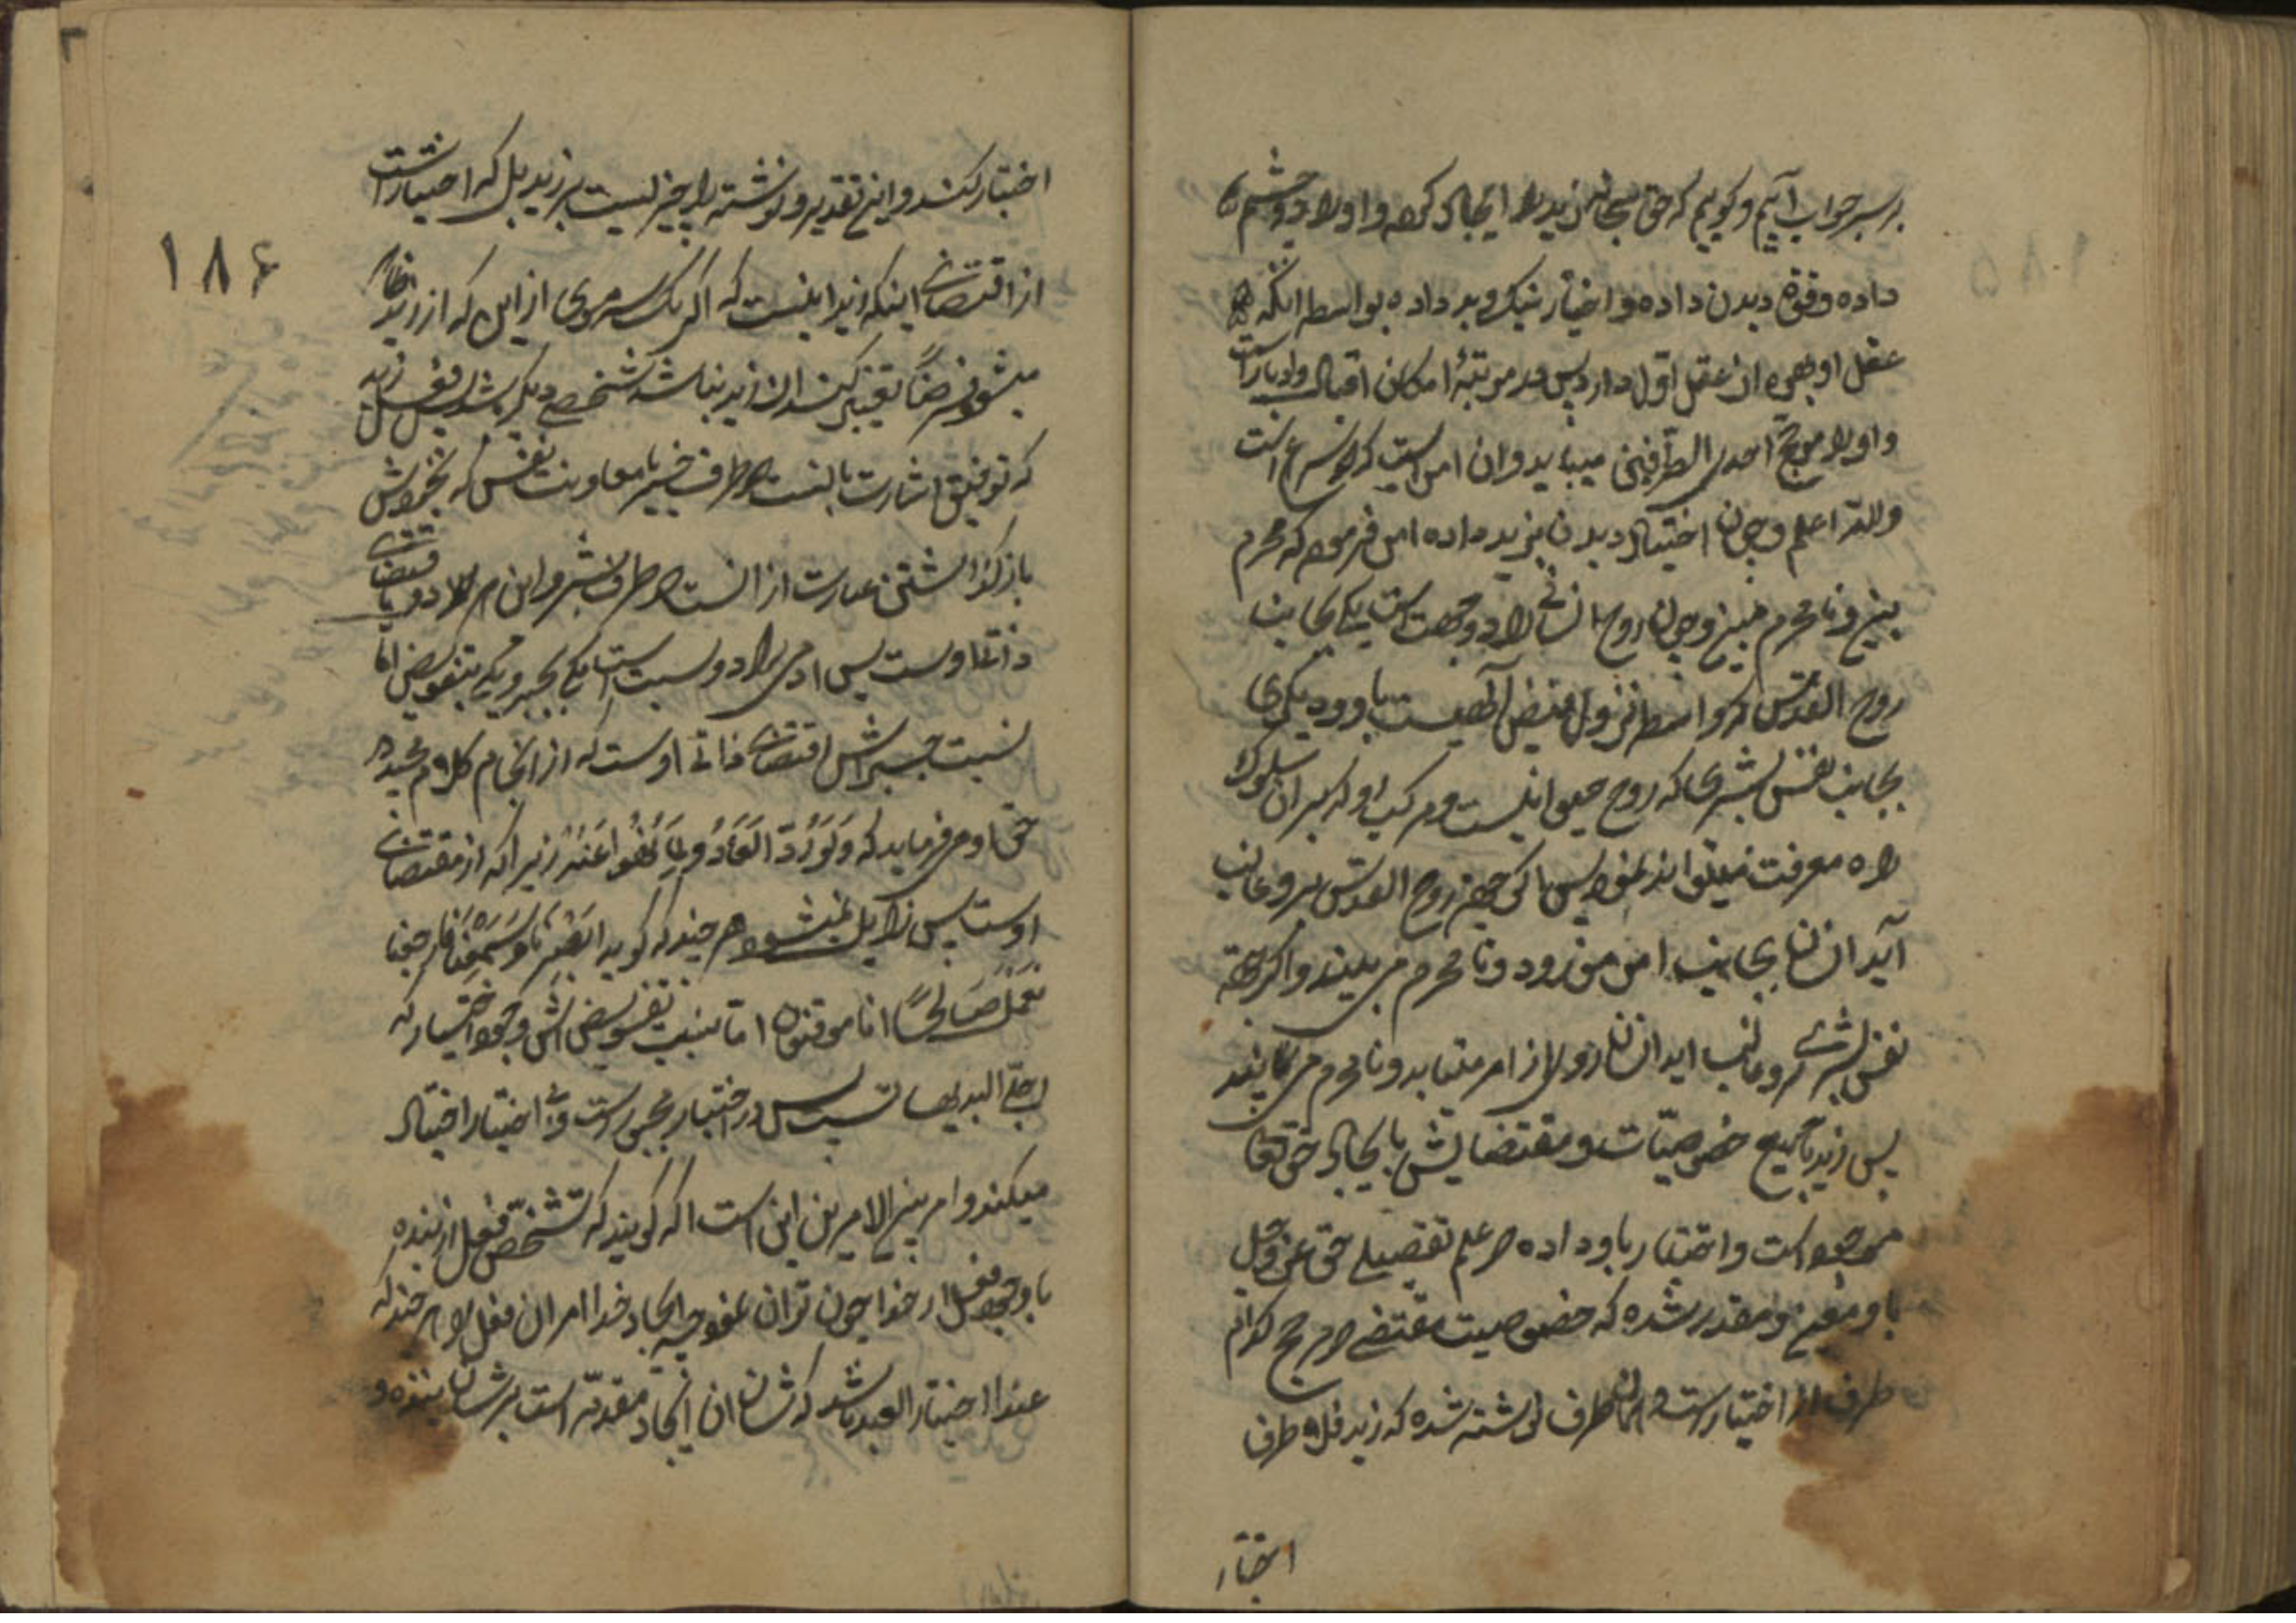 بر سر جواب آییم و گوییم که حق سبحانه زید را ایجاد کرده و او را دو چشم
داده و قوة دیدن داده و اختیار نیک و بد داده بواسطه انکه
عقل او بهره از عقل اوّل دارد پس در مرتبهٔ امکان اقبال و ادبار است
و او را مرجّح احدی الطرفین میباید و ان امریست که لازم شرع است
واللّه اعلم و چون اختیار دیدن بزید داده امر فرموده که محرم
بین و نامحرم مبین و چون روح انسانی را دو جهت است یکی بجانب
روح القدس که واسطه نزول فیض آلهیست باو و دیگری
بجانب نفس بشری که روح حیوانیست و مرکب او که بران سلوک
راه معرفت میتواند نمود پس اگر جهة روح القدس برو غالب
آید ان را بجانب امر میرود و نامحرم نمی بیند و اگر جهة
نفس بشری برو غالب اید ان رو را از امر میتابد و نامحرم می بیند
پس زید با جمیع خصوصیّات و مقتضایش بایجاد حق تعا
موجود است و اختیار باو داده در علم تفصیلی حق عزّ و جل
باو مفوّض و مقدر شده که خصوصیت مقتضی مرجح کدام
طرف از اختیار است و همان طرف نوشته شده که زید فلان طرف
اختیار
۱۸۶
اختیار کند و این تقدیر و نوشته را جبر نیست بر زید بل که اختیار است
از اقتضای اینکه زید اینست که اگر یک سر موی از این که از زید ظاهر
میشود فرضاً تغییر کند ان زید نباشد شخصی دیگر باشد پس فعل زید
که توفیق اشارت بانست در طرف خیر با معاونت نفس که بخودش
باز گذاشتن عبارت از انست در طرف شر و این هر دو باقتضای
ذات اوست پس ادمی را دو نسبت است یکی بجبر و یکی بتفویض امّا
نسبت جبرش اقتضای ذاتی اوست که از انجام کلام مجید
حق او می فرماید که وَلَوْ رُدُّوا لَعَادُوا لِمَا نُهُوا عَنْهُ زیرا که از مقتضای
اوست پس زایل نمیشود هر چند که گوید اَبْصَرْنَا وَسَمِعْنَا فَارْجِعْنَا
نَعْمَلْ صَالِحًا اِنَّا مُوقِنُونَ امّا نسبت تفویضش وجود اختیار که
اجلی البدیهیات است پس در اختیار مجبور است و بی اختیار اختیار
میکند و امر بین الامرین این است اگر گویند که تشخّص فعل از بنده
با وجود فعل از خدا چون توان نمود چه ایجاد خدا مر ان فعل را هر چند که
عند اختیار العبد باشد که شان ان ایجاد مقدّم است بر شان بنده و